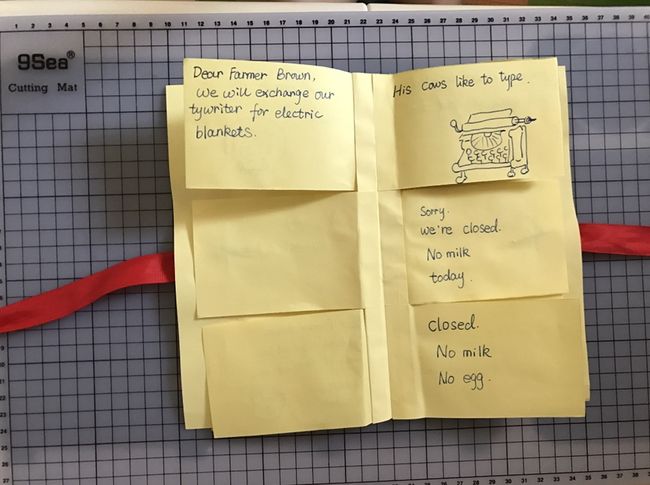 9Sea®
Cutting Mat
Dear Farmer Brown,
We will exchange our
tywriter for electric
blankets.
His cows like to type.
Sorry.
we're closed.
No milk
today.
Closed.
No milk
No egg.